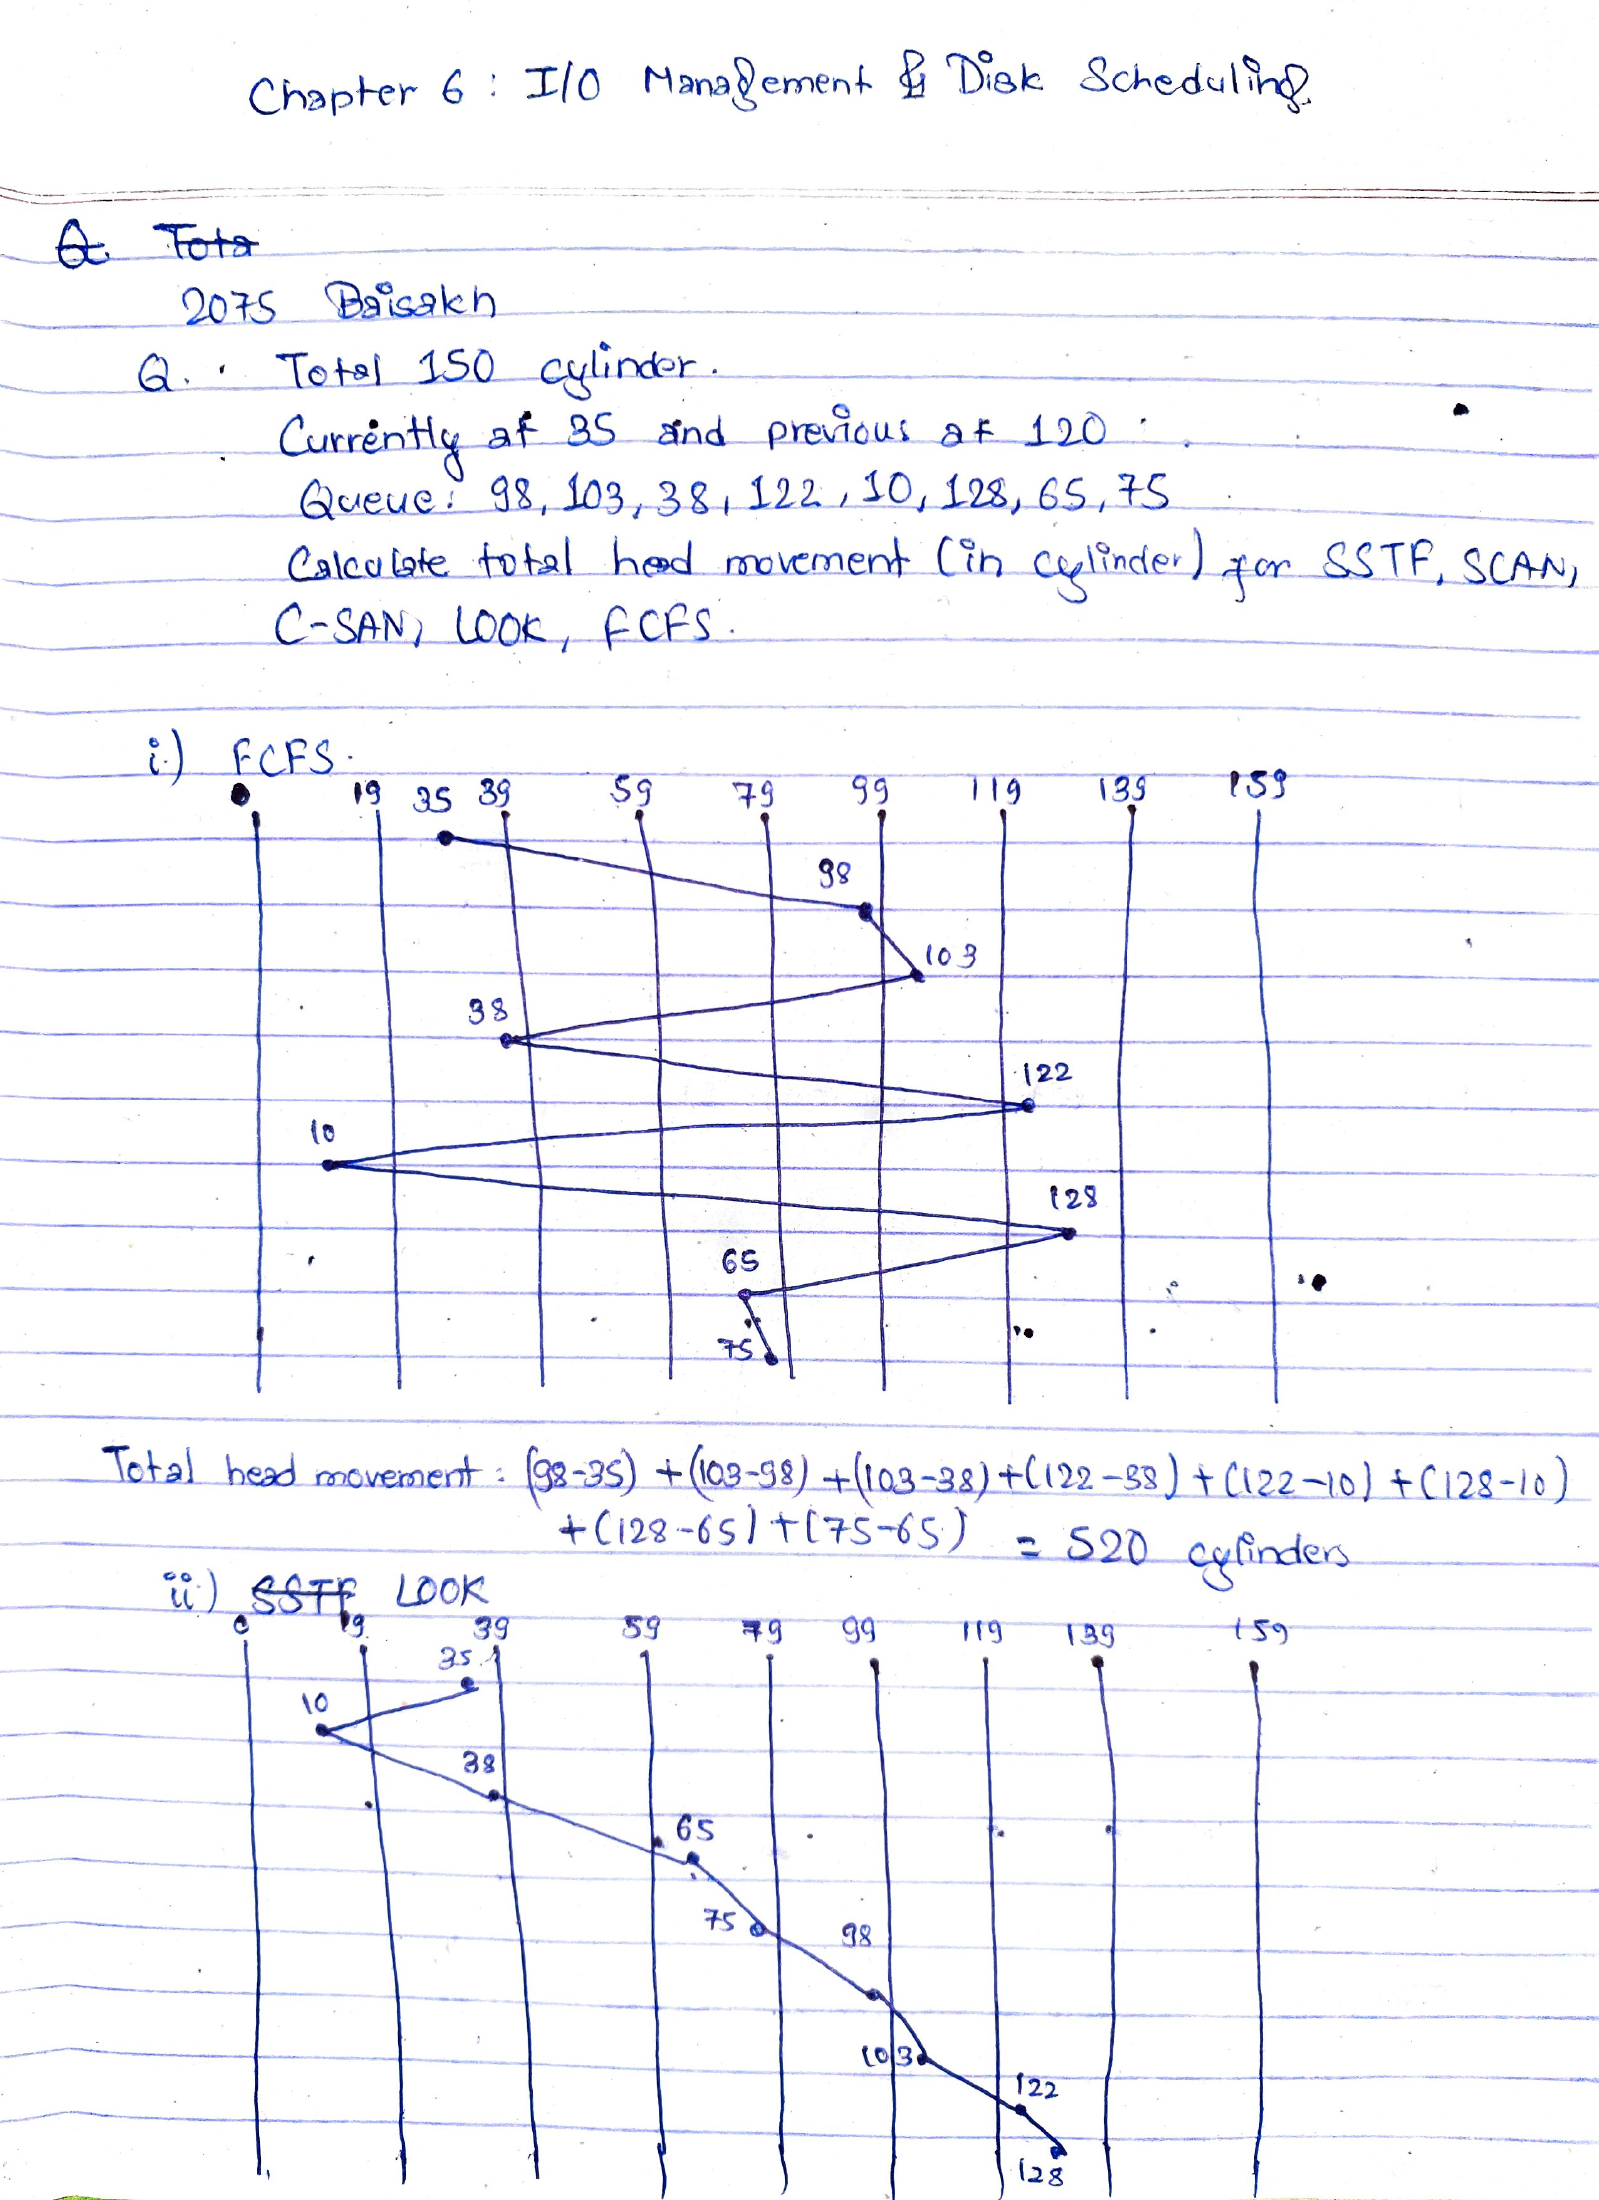 Chapter 6 : I/O Management & Disk Scheduling
Q. Tota
2075 Baisakh
Q. Total 150 cylinder.
Currently at 35 and previous at 120
Queue: 98, 103, 38, 122, 10, 128, 65, 75
Calculate total head movement (in cylinder) for SSTF, SCAN,
C-SAN, LOOK, FCFS.
i.) FCFS.
0 19 35 39 59 79 99 119 139 159
98
103
38
122
10
128
65
75
Total head movement : (98-35) + (103-98) + (103-38) + (122-38) + (122-10) + (128-10)
+ (128-65) + (75-65) = 520 cylinders
ii.) SSTF LOOK
0 19 39 59 79 99 119 139 159
35
10
38
65
75 98
103
122
128